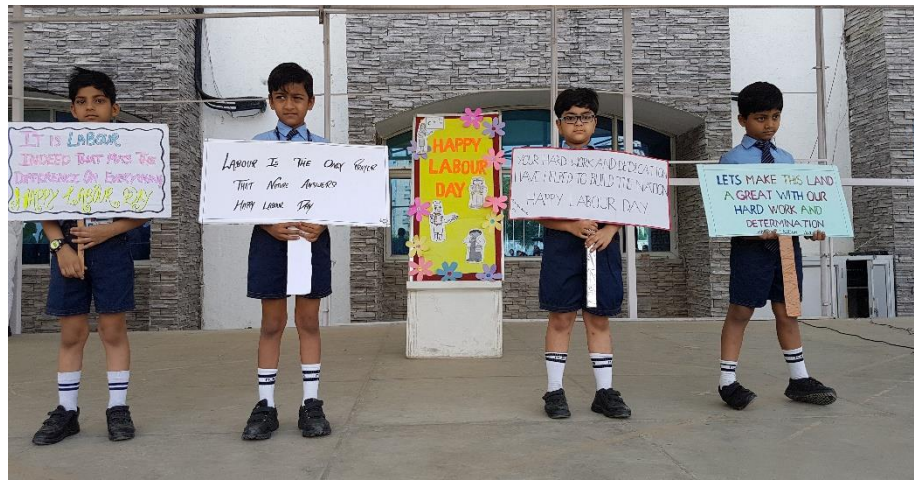 IT IS LABOUR
INDEED THAT PUTS THE
DIFFERENCE ON EVERYTHING
HAPPY LABOUR DAY
LABOUR IS THE ONLY PRAYER
THET NATURE ANSWERS
HAPPY LABOUR DAY
HAPPY
LABOUR
DAY
YOUR HARD WORK AND DEDICATION
HAVE HELPED TO BUILD THE NATION
HAPPY LABOUR DAY
LETS MAKE THIS LAND
A GREAT WITH OUR
HARD WORK AND
DETERMINATION